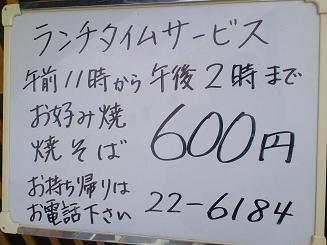 ランチタイムサービス
午前11時から午後2時まで
お好み焼
焼そば 600円
お持ち帰りは
お電話下さい 22-6184